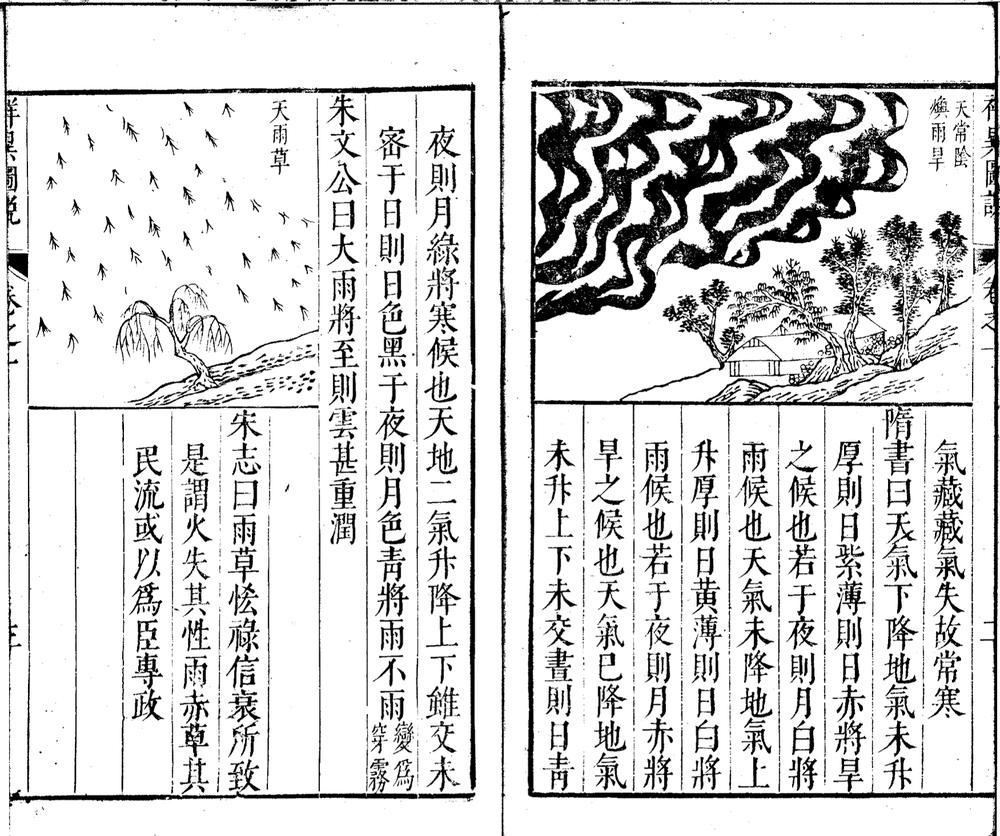 天常陰
燠雨旱
氣藏藏氣失故常寒
隋書曰天氣下降地氣未升
厚則日紫薄則日赤將旱
之候也若于夜則月白將
雨候也天氣未降地氣上
升厚則日黃薄則日白將
雨候也若于夜則月赤將
旱之候也天氣巳降地氣
未升上下未交晝則日青
夜則月綠將寒候也天地二氣升降上下雖交未
密于日則日色黑于夜則月色青將雨不雨變爲
穿霧
朱文公曰大雨將至則雲甚重潤
天雨草
宋志曰雨草恡祿信衰所致
是謂火失其性雨赤草其
民流或以爲臣專政
祥異圖說
卷之一